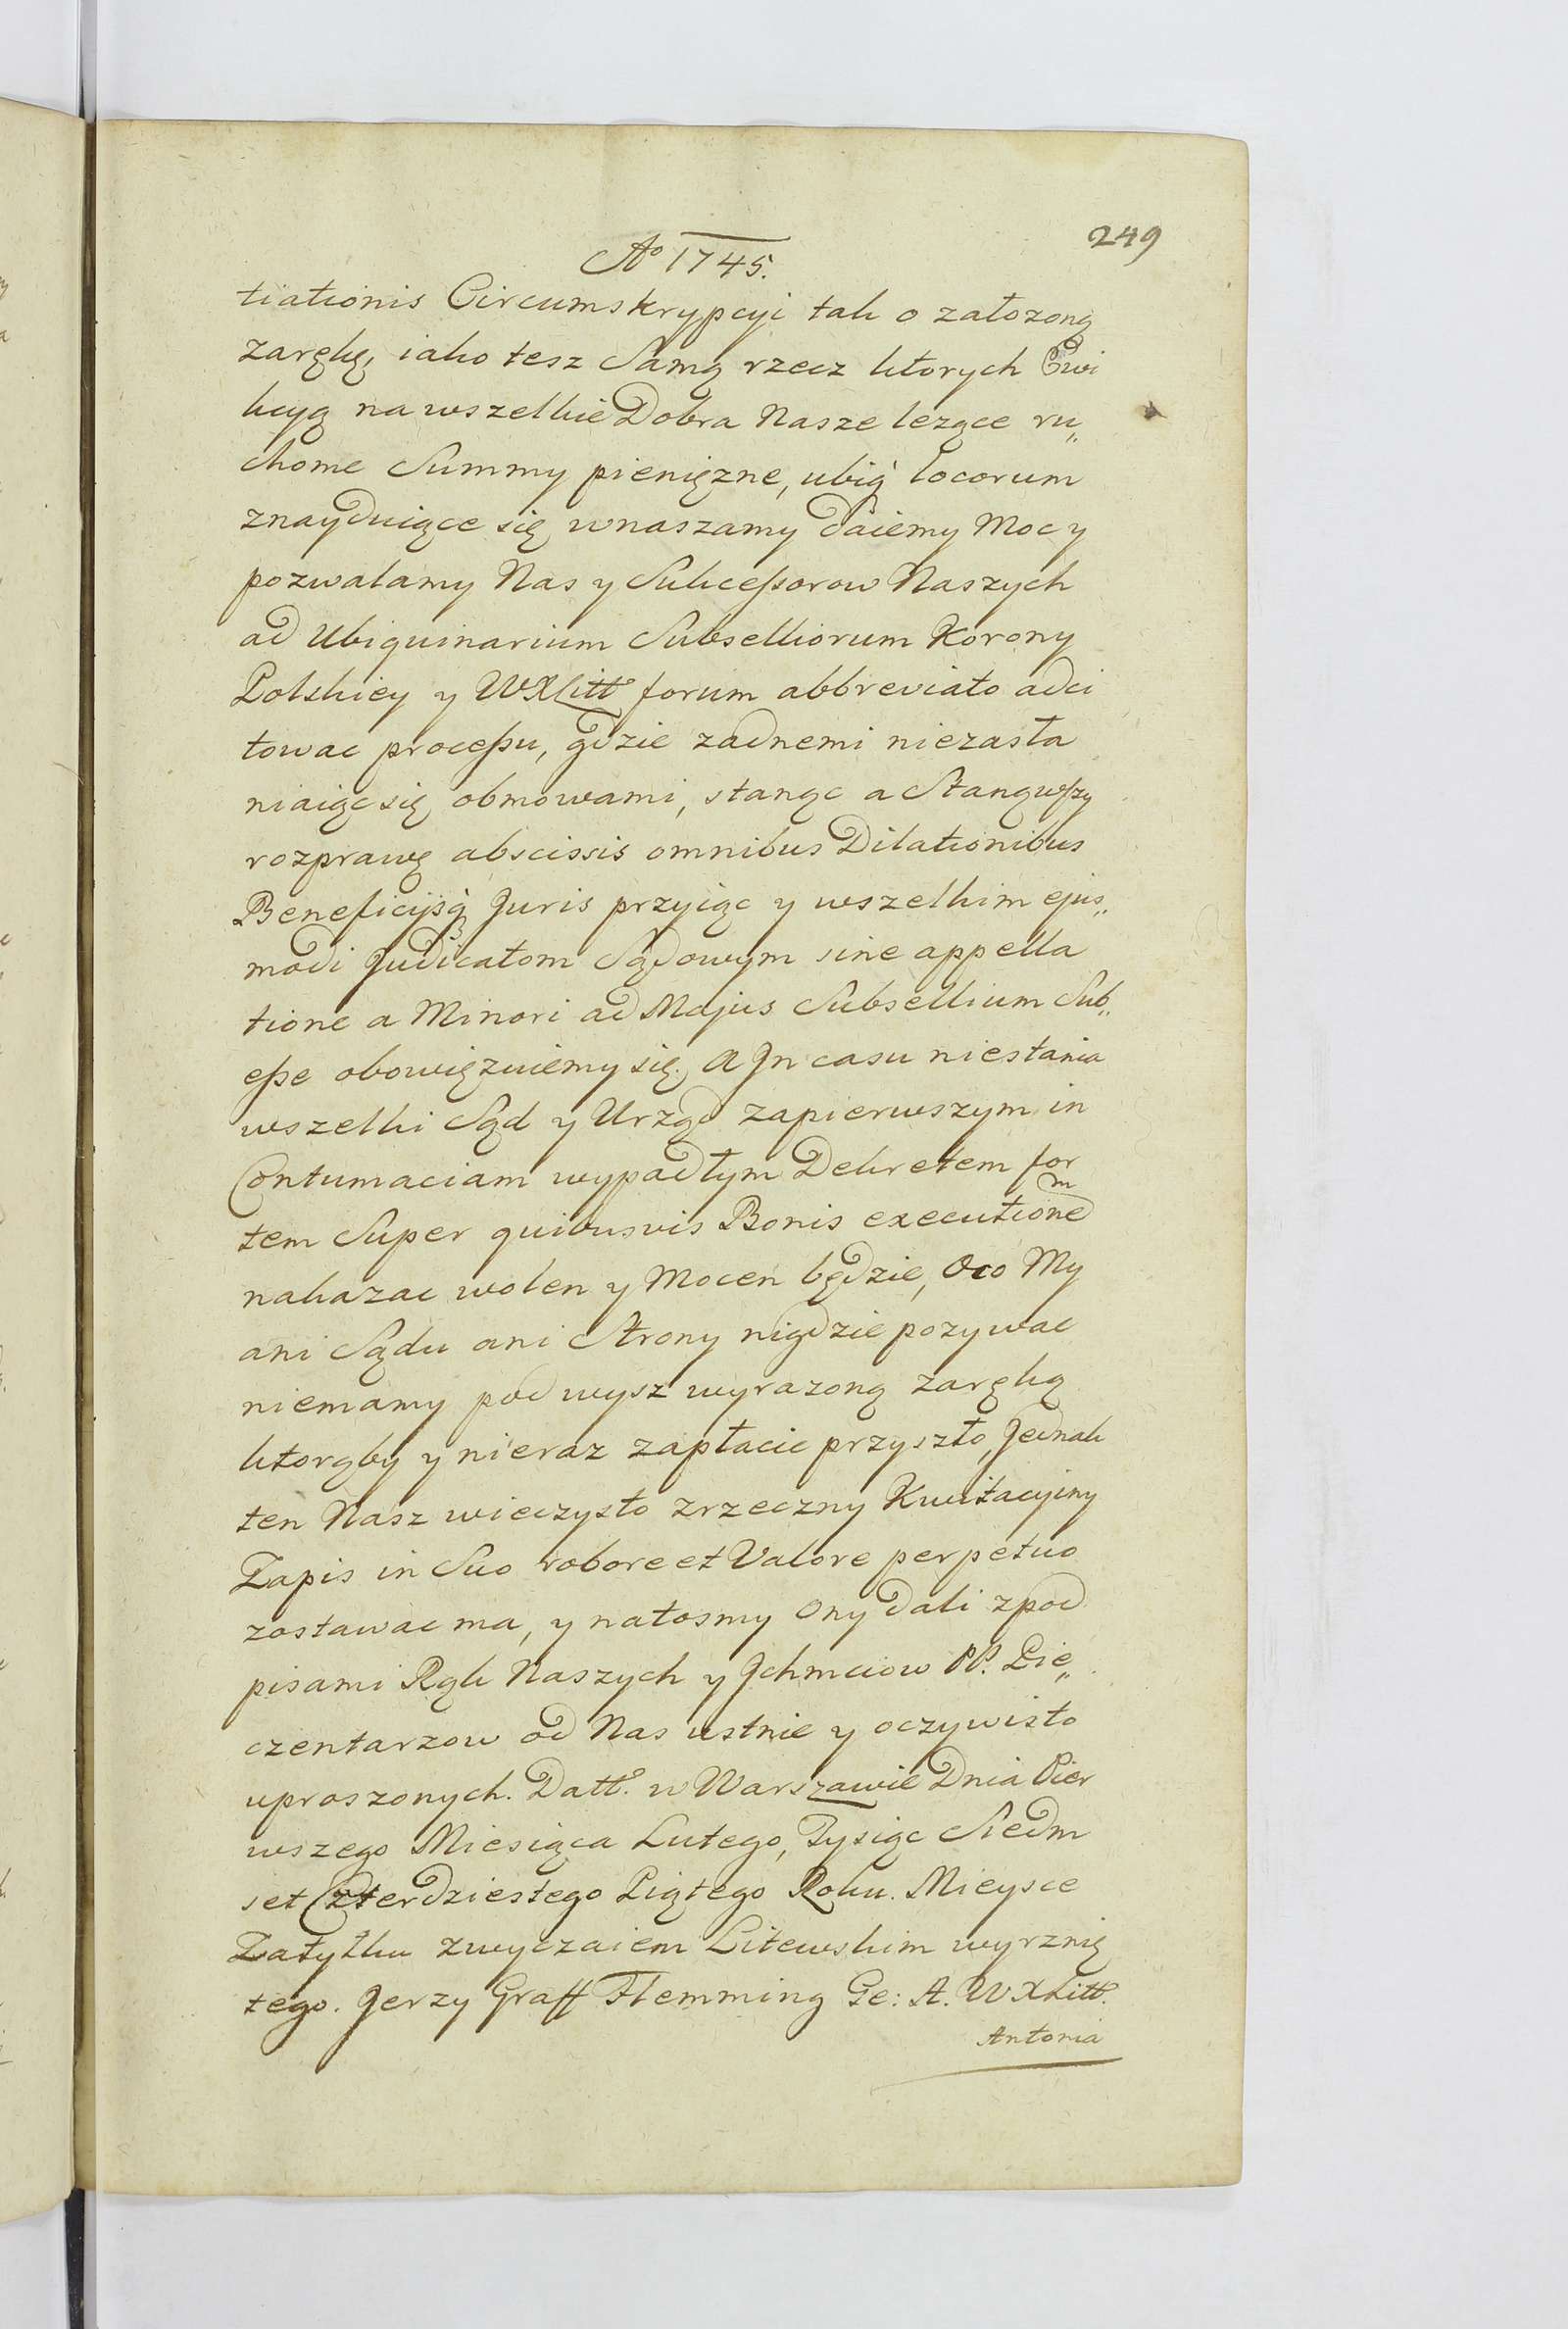 249
Ao 1745.
tiationis Circumskrypcyi tak o założoną
zarękę, iako tesz Samą rzecz ktorych Ewi
kcyą na wszelkie Dobra Nasze lezące ru„
chome Summy pieniężne, ubiq locorum
znayduiące się wnaszamy daiemy Moc y
pozwalamy Nas y Sukceßorow Naszych
ad Ubiquinarium Subselliorum Korony
Polskiey y WXLitt forum abbreviato adci
towac proceßu, gdzie zadnemi niezasła
niaiąc się obmowami, stanąc a Stanąwszy
rozprawę abscissis omnibus Dilationibus
Beneficijsq Juris przyiąc y wszelkim ejus„
modi Judicatom Sądowym sine appella
tione a Minori ad Majus Subsellium Sub„
eße obowięzuiemy się. A Jn casu niestania
wszelki Sąd y Urząd zapierwszym in
Contumaciam wypadłym Dekretem for
tem Super quibusvis Bonis executionem
nakazac wolen y Mocen będzie, Oco My
ani Sądu ani Strony nigdzie pozywac
niemamy pod wysz wyrazoną zaręką
ktorąby y nieraz zapłacic przyszło, Jednak
ten Nasz wieczysto zrzeczny Kwitacyiny
Zapis in Suo robore et Valore perpetuo
zostawac ma, y natosmy Ony dali zpod
pisami Rąk Naszych y Jchmciow PP. Pie„
czentarzow od Nas ustnie y oczywisto
uproszonych. Datt. w Warszawie Dnia Pier
wszego Miesiąca Lutego, Tysiąc Siedm
set Czterdziestego Piątego Roku. Mieysce
Zatyłku zwyczaiem Litewskim wyrznię
tego. Jerzy Graff Flemming Ge: A. WXLitt.
Antonia